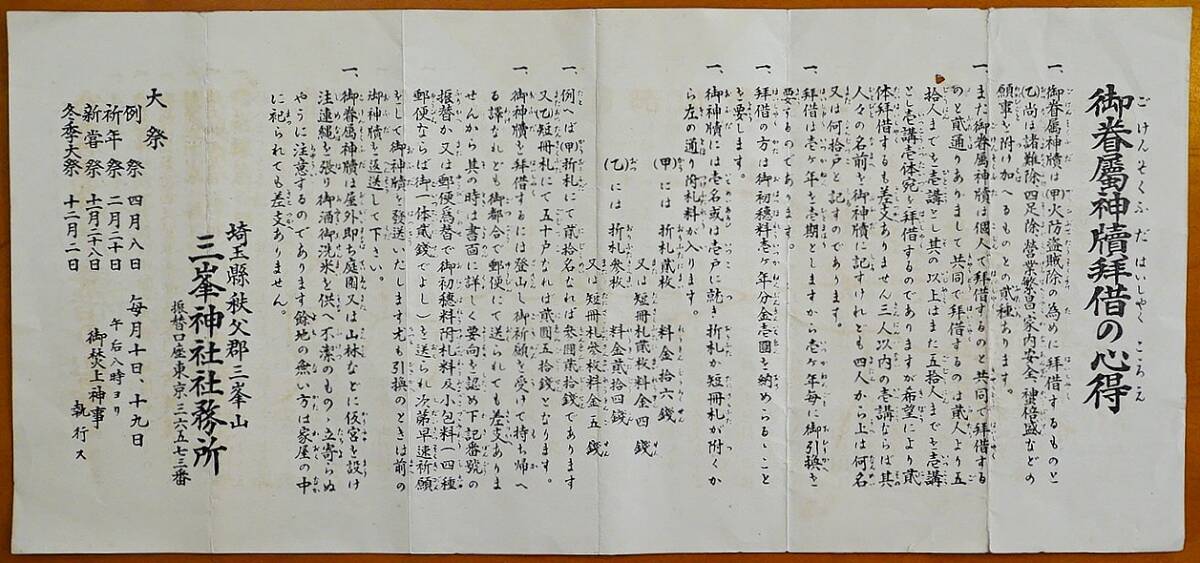 御眷屬神牘拜借の心得
一、御眷屬神牘は(甲)火防盜賊除の為めに拜借するものと
(乙)尚は諸難除四足除營業繁昌家內安全種棓盛などの
願事を附け加へるものとの貳種あります。
一、また御眷屬神牘は個人で拜借するのと共同で拜借する
のと貳通りありまして共同で拜借するのは貳人より五
拾人までを壱講とし其の以上はまた五拾人までを壱講
とし壱講壱体宛を拜借するのでありますが希望により貳
体拜借するも差支ありません三人以內の壱講ならば其
人々の名前を御神牘に記すけれども四人から上は何名
又は何拾戶と記すのであります。
一、拜借は壱ヶ年を壱期としますから壱ヶ年每に御引換を
要するのであります。
一、拜借の方は御初穗料壱ヶ年分金壱圓を納めらるゝこと
を要します。
一、御神牘には壱名或は壱戶に就き折札か短冊札が附くか
ら左の通り附札料が入ります。
(甲)には 折札貳枚 料金拾六錢
又は短冊札貳枚料金四錢
(乙)には 折札參枚 料金貳拾四錢
又は短冊札參枚料金五錢
一、例へば(甲)折札にて貳拾名なれば參圓貳拾錢であります
又(乙)短冊札にて五十戶なれば貳圓五拾錢となります。
一、御神牘を拜借するには登山し御祈願を受けて持ち帰へ
る譯なれども御都合で郵便にて送られても差支ありま
せんから其の時は書面に詳しく要向を認め下記番號の
振替か又は郵便爲替で御初穗料附札料及小包料(四種
郵便ならば御一体貳錢でよし)を送られ次第早速祈願
をして御神牘を發送いたします尤も引換のときは前の
御神牘を返送して下さい。
一、御眷屬神牘は屋外卽ち庭園又は山林などに仮宮を設け
注連繩を張り御酒御洗米を供へ不潔のもの、立寄らぬ
やうに注意するのであります餘地の無い方は家屋の中
に祀られても差支ありません。
埼玉縣秩父郡三峯山
三峯神社社務所
振替口座東京三六五七三番
大祭
例祭 四月八日
祈年祭 二月二十日
新嘗祭 十一月二十八日
冬季大祭 十二月二日
每月十日、十九日
午后八時ヨリ
御焚上神事
執行ス